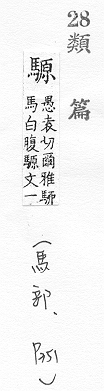 28類篇
騵
愚袁切爾雅駵
馬白腹騵文一
(馬部、P351)